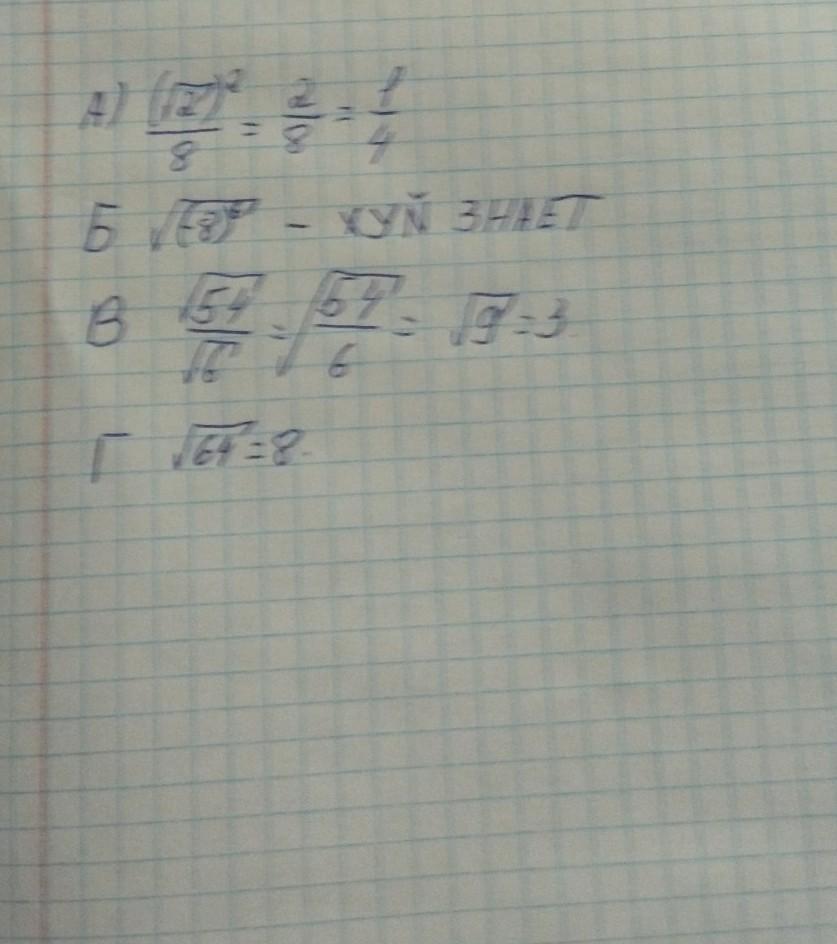 А) (√2)²/8 = 2/8 = 1/4
Б √(-8)² – ХУЙ ЗНАЕТ
В √54/√6 = √54/6 = √9 = 3
Г √64 = 8